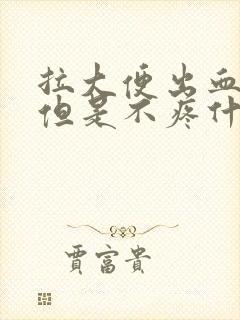 拉大便出血
但是不疼什
贾富贵